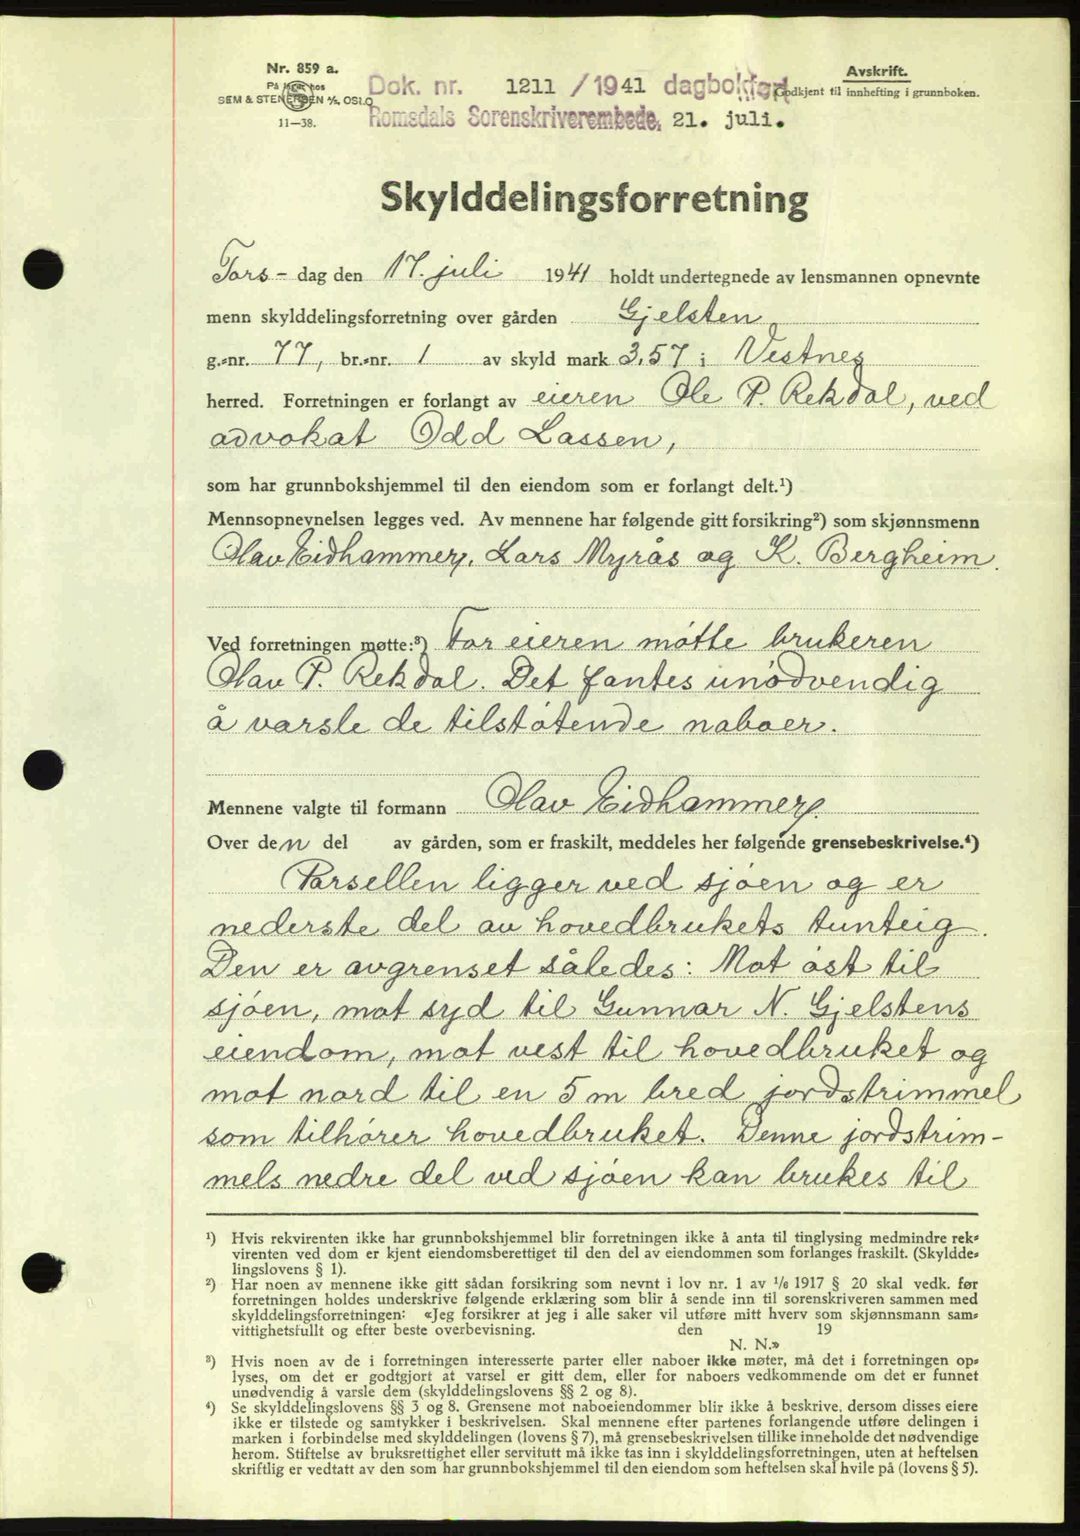 Nr. 859 a.
På lager hos
SEM & STENERSEN A/S, OSLO
11—38.
Avskrift.
Godkjent til innhefting i grunnboken.
Dok. nr. 1211 / 1941 dagbokført
Romsdals Sorenskriverembede, 21. juli.
Skylddelingsforretning
Tors - dag den 17. juli 1941 holdt undertegnede av lensmannen opnevnte
menn skylddelingsforretning over gården Gjelsten
g.-nr. 77, br.-nr. 1 av skyld mark 3,57 i Vestnes
herred. Forretningen er forlangt av eieren Ole P. Rekdal, ved
advokat Odd Lassen,
som har grunnbokshjemmel til den eiendom som er forlangt delt.¹)
Mennsopnevnelsen legges ved. Av mennene har følgende gitt forsikring²) som skjønnsmenn
Olav Eidhammer, Lars Myrås og K. Bergheim.
Ved forretningen møtte:³) For eieren møtte brukeren
Olav P. Rekdal. Det fantes unødvendig
å varsle de tilstøtende naboer.
Mennene valgte til formann Olav Eidhammer.
Over den del av gården, som er fraskilt, meddeles her følgende grensebeskrivelse.⁴)
Parsellen ligger ved sjøen og er
nederste del av hovedbrukets tunteig.
Den er avgrenset således: Mot øst til
sjøen, mot syd til Gunnar N. Gjelstens
eiendom, mot vest til hovedbruket og
mot nord til en 5 m bred jordstrimmel
som tilhører hovedbruket. Denne jordstrim-
mels nedre del ved sjøen kan brukes til
¹) Hvis rekvirenten ikke har grunnbokshjemmel blir forretningen ikke å anta til tinglysing medmindre rek-
virenten ved dom er kjent eiendomsberettiget til den del av eiendommen som forlanges fraskilt. (Skyldde-
lingslovens § 1).
²) Har noen av mennene ikke gitt sådan forsikring som nevnt i lov nr. 1 av 1/6 1917 § 20 skal vedk. før
forretningen holdes underskrive følgende erklæring som blir å sende inn til sorenskriveren sammen med
skylddelingsforretningen: «Jeg forsikrer at jeg i alle saker vil utføre mitt hverv som skjønnsmann sam-
vittighetsfullt og efter beste overbevisning. den 19
N. N.»
³) Hvis noen av de i forretningen interesserte parter eller naboer ikke møter, må det i forretningen op-
lyses, om det er godtgjort at varsel er gitt dem, eller for naboers vedkommende om det er funnet
unødvendig å varsle dem (skylddelingslovens §§ 2 og 8).
⁴) Se skylddelingslovens §§ 3 og 8. Grensene mot naboeiendommer blir ikke å beskrive, dersom disses eiere
ikke er tilstede og samtykker i beskrivelsen. Skal mennene efter partenes forlangende utføre delingen i
marken i forbindelse med skylddelingen (lovens § 7), må grensebeskrivelsen tillike inneholde det nødvendige
herom. Stiftelse av bruksrettighet eller servitutt må ikke tas inn i skylddelingsforretningen, uten at heftelsen
skriftlig er vedtatt av den som har grunnbokshjemmel til den eiendom som heftelsen skal hvile på (lovens § 5).